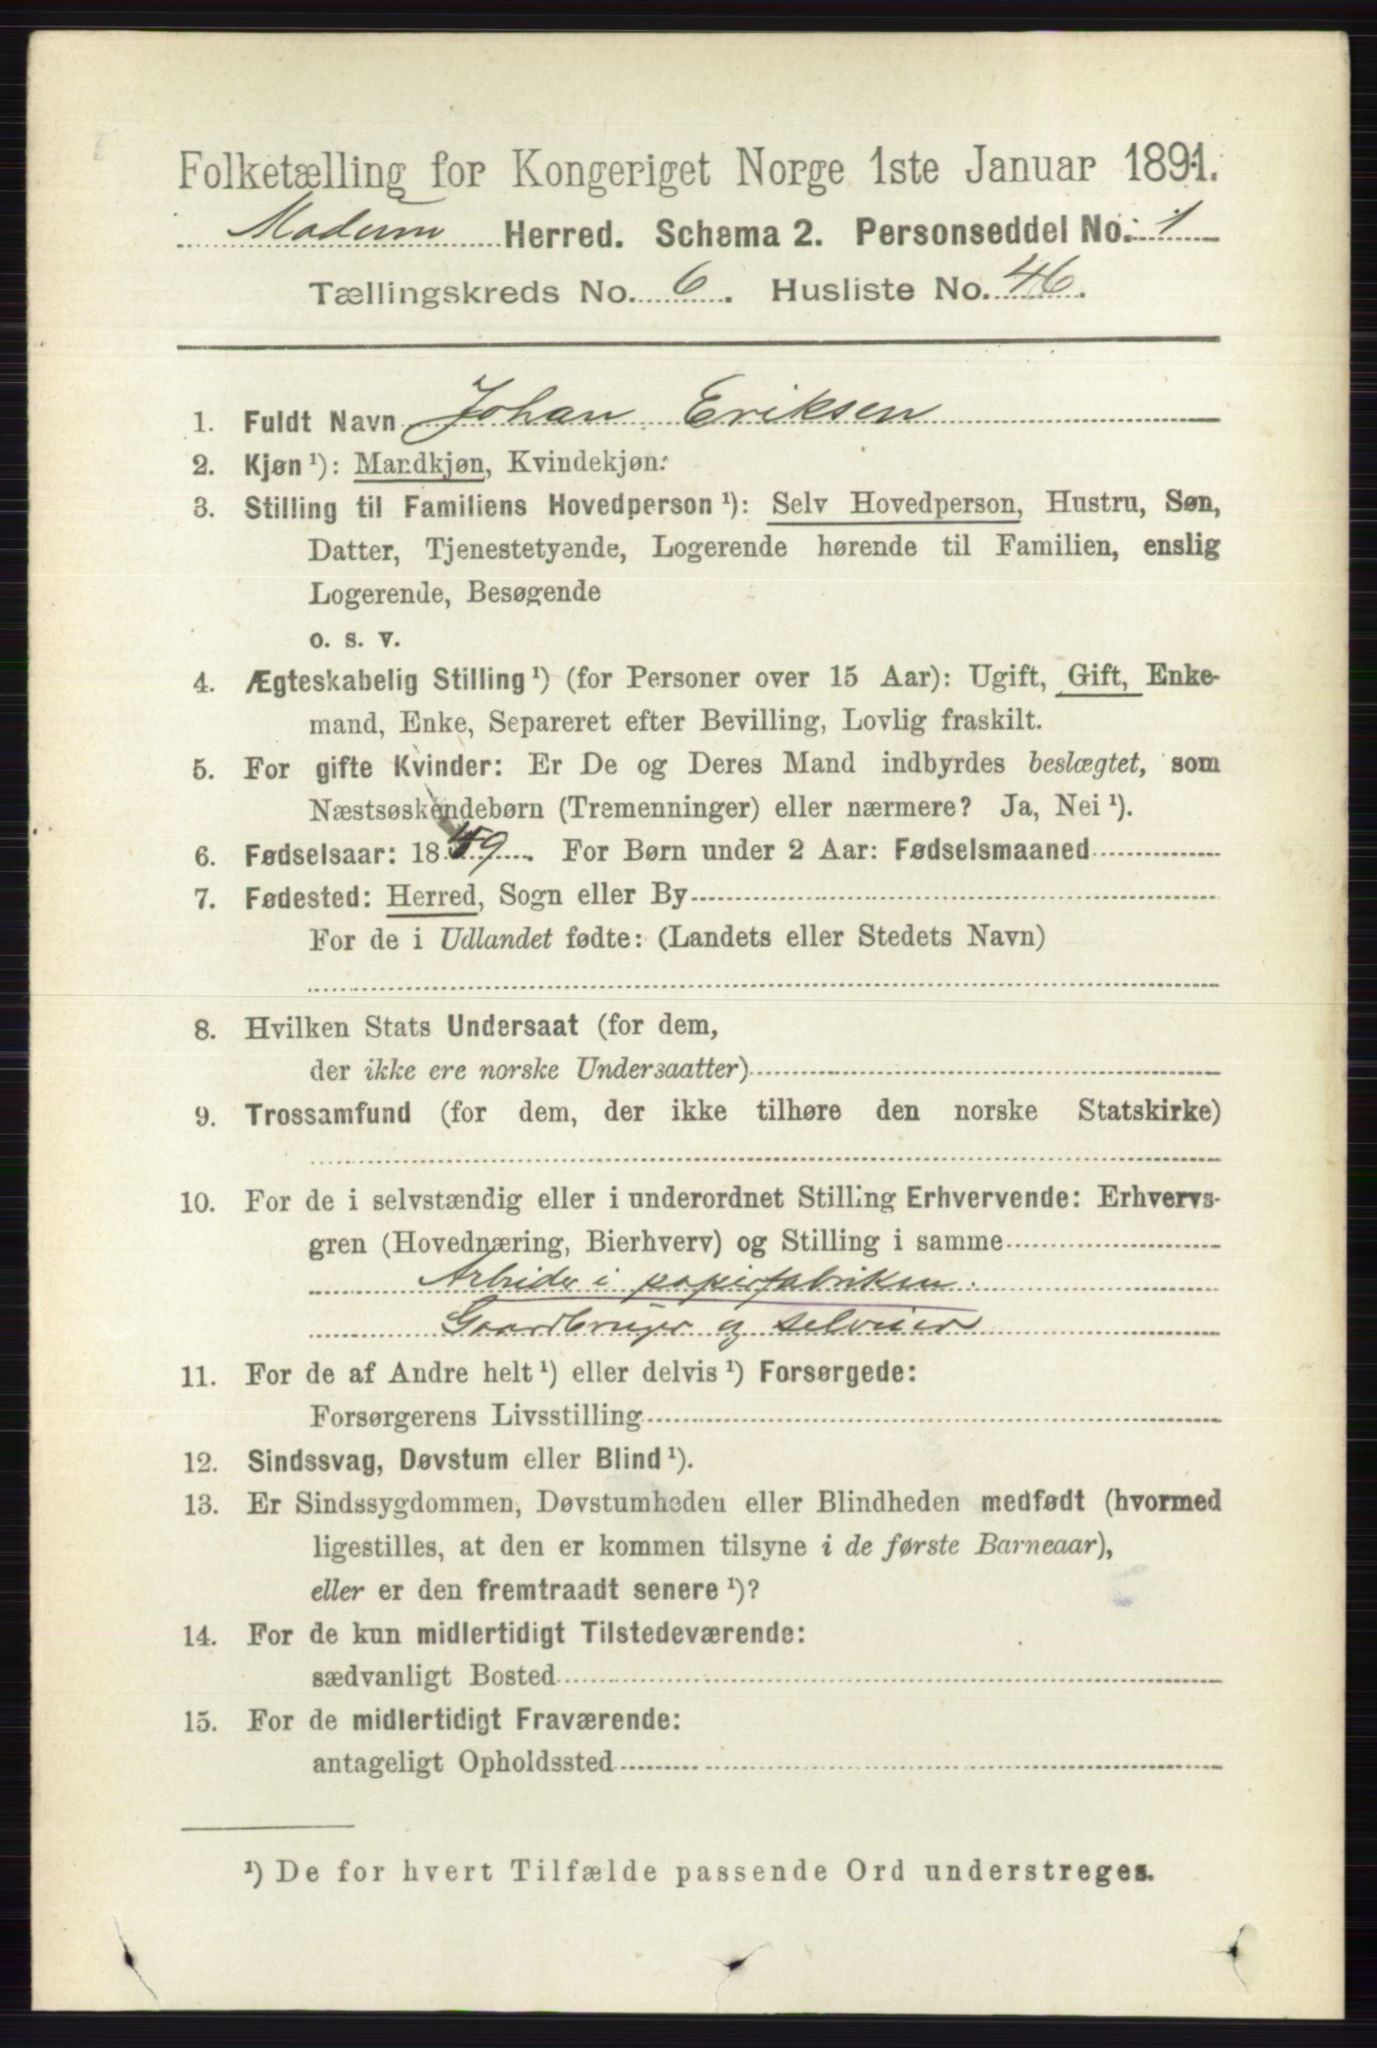 Folketælling for Kongeriget Norge 1ste Januar 1891.
Modum Herred. Schema 2. Personseddel No. 1
Tællingskreds No. 6. Husliste No. 46.
1. Fuldt Navn Johan Eriksen
2. Kjøn¹): Mandkjøn, Kvindekjøn.
3. Stilling til Familiens Hovedperson¹): Selv Hovedperson, Hustru, Søn,
Datter, Tjenestetyende, Logerende hørende til Familien, enslig
Logerende, Besøgende
o. s. v.
4. Ægteskabelig Stilling¹) (for Personer over 15 Aar): Ugift, Gift, Enke-
mand, Enke, Separeret efter Bevilling, Lovlig fraskilt.
5. For gifte Kvinder: Er De og Deres Mand indbyrdes beslægtet, som
Næstsøskendebørn (Tremenninger) eller nærmere? Ja, Nei¹).
6. Fødselsaar: 1859. For Børn under 2 Aar: Fødselsmaaned
7. Fødested: Herred, Sogn eller By
For de i Udlandet fødte: (Landets eller Stedets Navn)
8. Hvilken Stats Undersaat (for dem,
der ikke ere norske Undersaatter)
9. Trossamfund (for dem, der ikke tilhøre den norske Statskirke)
10. For de i selvstændig eller i underordnet Stilling Erhvervende: Erhvervs-
gren (Hovednæring, Bierhverv) og Stilling i samme
Arbeider i papirfabriken.
Gaardbruger og selveier
11. For de af Andre helt¹) eller delvis¹) Forsørgede:
Forsørgerens Livsstilling
12. Sindssvag, Døvstum eller Blind¹).
13. Er Sindssygdommen, Døvstumheden eller Blindheden medfødt (hvormed
ligestilles, at den er kommen tilsyne i de første Barneaar),
eller er den fremtraadt senere¹)?
14. For de kun midlertidigt Tilstedeværende:
sædvanligt Bosted
15. For de midlertidigt Fraværende:
antageligt Opholdssted
¹) De for hvert Tilfælde passende Ord understreges.